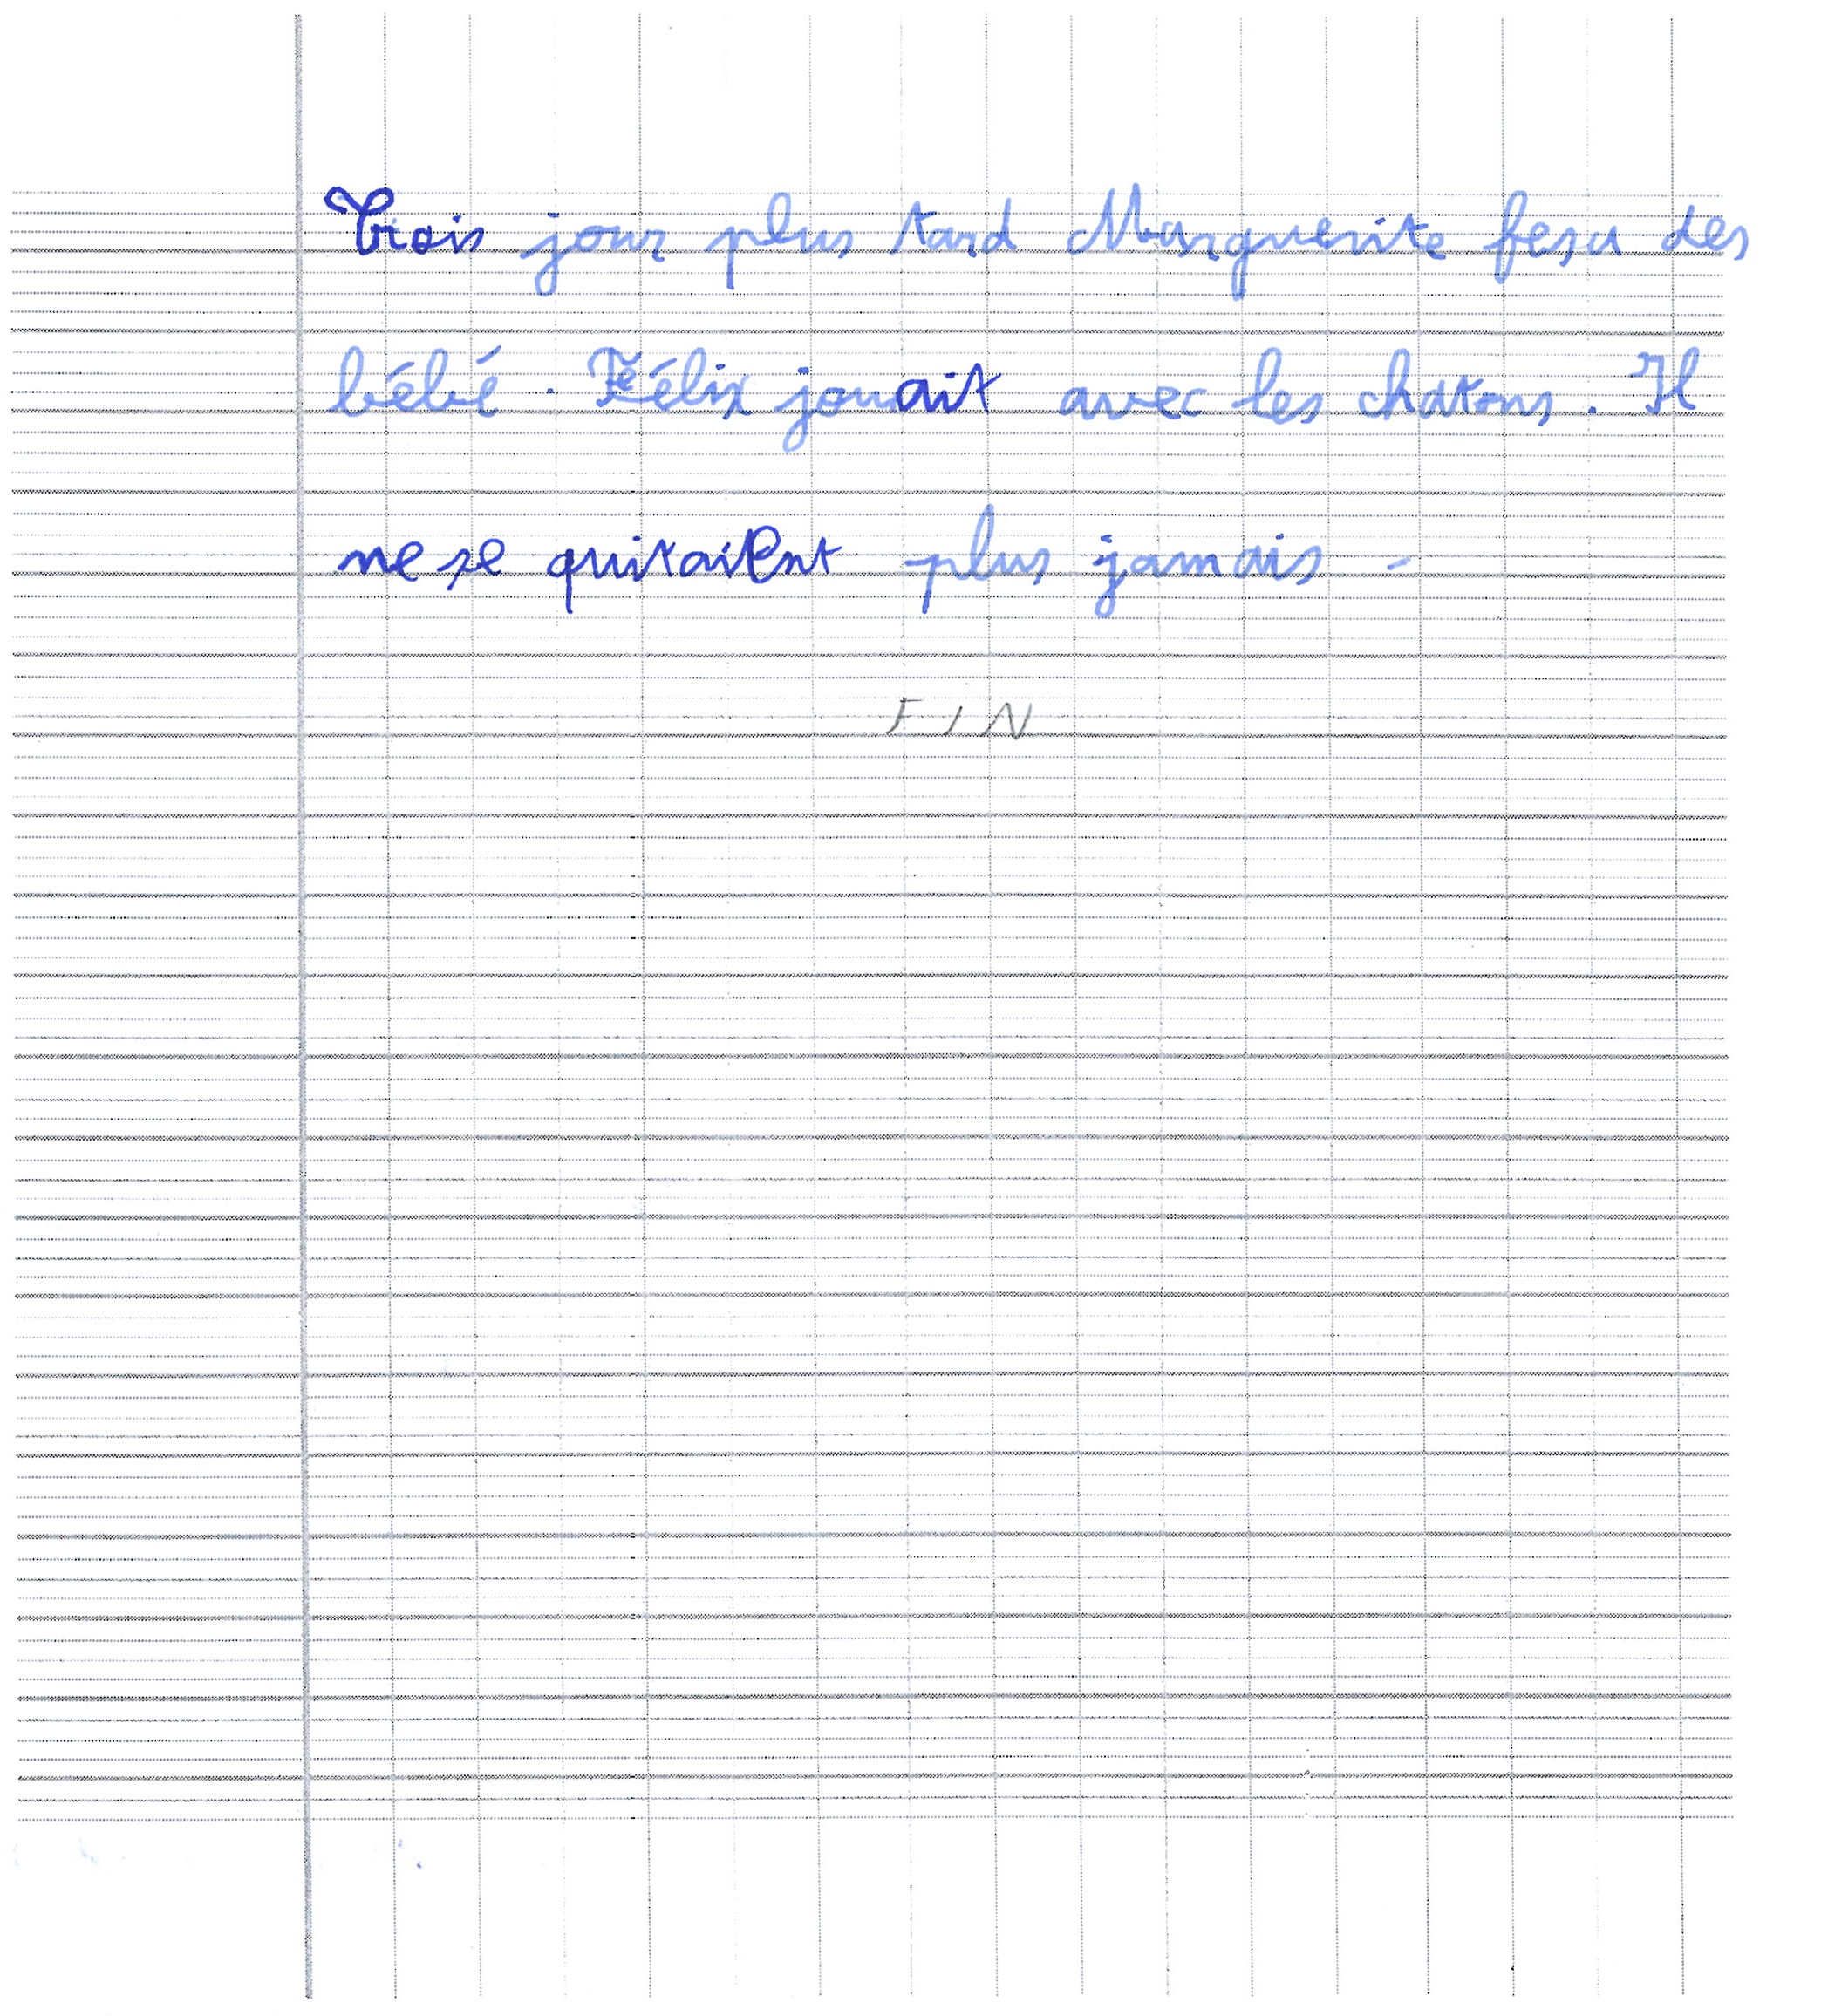 Trois jour plus tard Marguerite fesa des
bébé. Félix jouait avec les chatons. Il
ne se quitaient plus jamais.
FIN